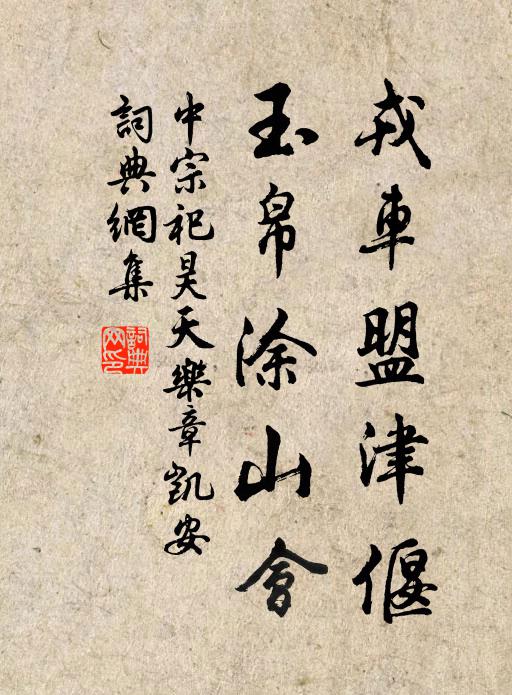 戎車盟津偃
玉帛涂山會
中宗祀昊天樂章凱安
詞典網集
詞典
网印